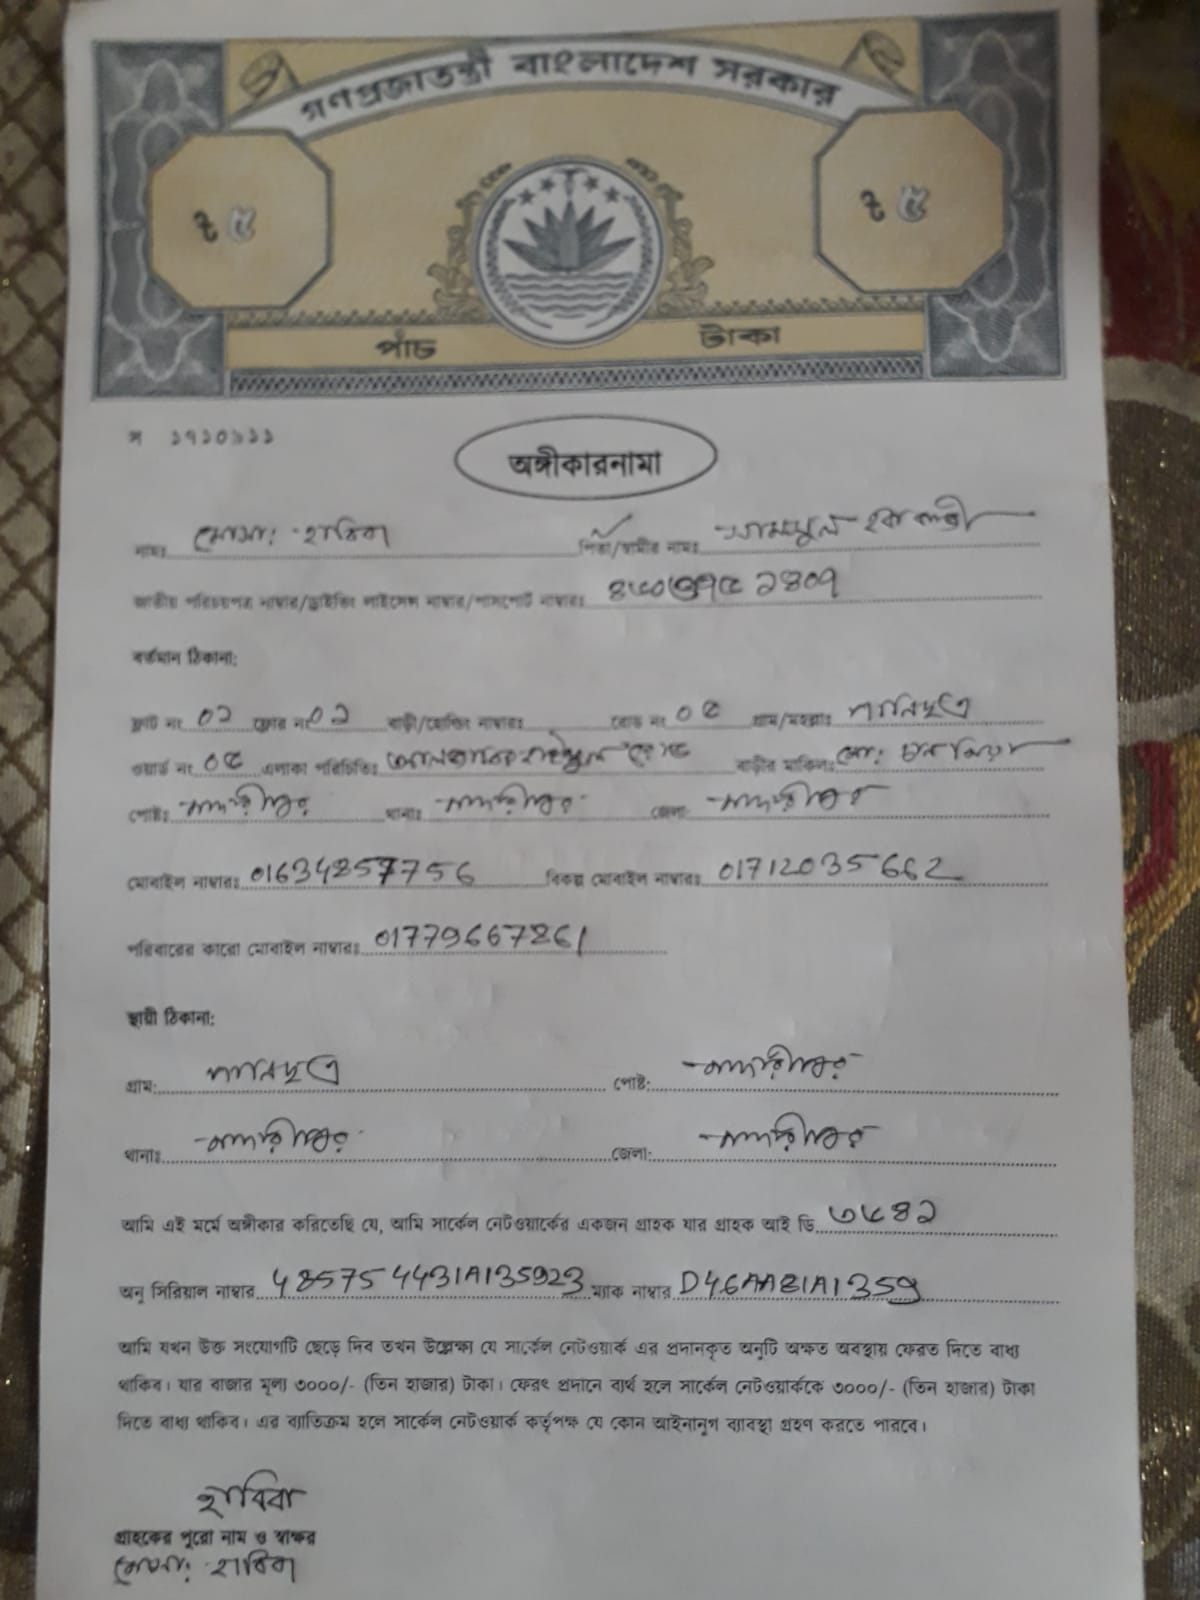 গণপ্রজাতন্ত্রী বাংলাদেশ সরকার
৳ ৫ ৳ ৫
পাঁচ টাকা
স ১৭১০৯১১
অঙ্গীকারনামা
নামঃ মোসা: হাবিবা পিতা/স্বামীর নামঃ
জাতীয় পরিচয়পত্র নাম্বার/ড্রাইভিং লাইসেন্স নাম্বার/পাসপোর্ট নাম্বারঃ
বর্তমান ঠিকানা:
ফ্লাট নং ০১ ফ্লোর নং ০১ বাড়ী/হোল্ডিং নাম্বারঃ রোড নং ০৫ গ্রাম/মহল্লাঃ পানিছত্র
ওয়ার্ড নং ০৫ এলাকা পরিচিতিঃ বাড়ীর মালিকঃ মো: চান মিয়া
পোষ্টঃ মাদারীপুর থানাঃ মাদারীপুর জেলা: মাদারীপুর
মোবাইল নাম্বারঃ 01634857756 বিকল্প মোবাইল নাম্বারঃ 01712035662
পরিবারের কারো মোবাইল নাম্বারঃ 01779667861
স্থায়ী ঠিকানা:
গ্রাম: পানিছত্র পোষ্ট: মাদারীপুর
থানাঃ মাদারীপুর জেলা: মাদারীপুর
আমি এই মর্মে অঙ্গীকার করিতেছি যে, আমি সার্কেল নেটওয়ার্কের একজন গ্রাহক যার গ্রাহক আই ডি ৩৮৪১
অনু সিরিয়াল নাম্বার 4857544431A135923 ম্যাক নাম্বার D46AA81A1359
আমি যখন উক্ত সংযোগটি ছেড়ে দিব তখন উল্লেক্ষা যে সার্কেল নেটওয়ার্ক এর প্রদানকৃত অনুটি অক্ষত অবস্থায় ফেরত দিতে বাধ্য
থাকিব। যার বাজার মূল্য ৩০০০/- (তিন হাজার) টাকা। ফেরৎ প্রদানে ব্যর্থ হলে সার্কেল নেটওয়ার্ককে ৩০০০/- (তিন হাজার) টাকা
দিতে বাধ্য থাকিব। এর ব্যাতিক্রম হলে সার্কেল নেটওয়ার্ক কর্তৃপক্ষ যে কোন আইনানুগ ব্যাবস্থা গ্রহণ করতে পারবে।
হাবিবা
গ্রাহকের পুরো নাম ও স্বাক্ষর
মোসা: হাবিবা